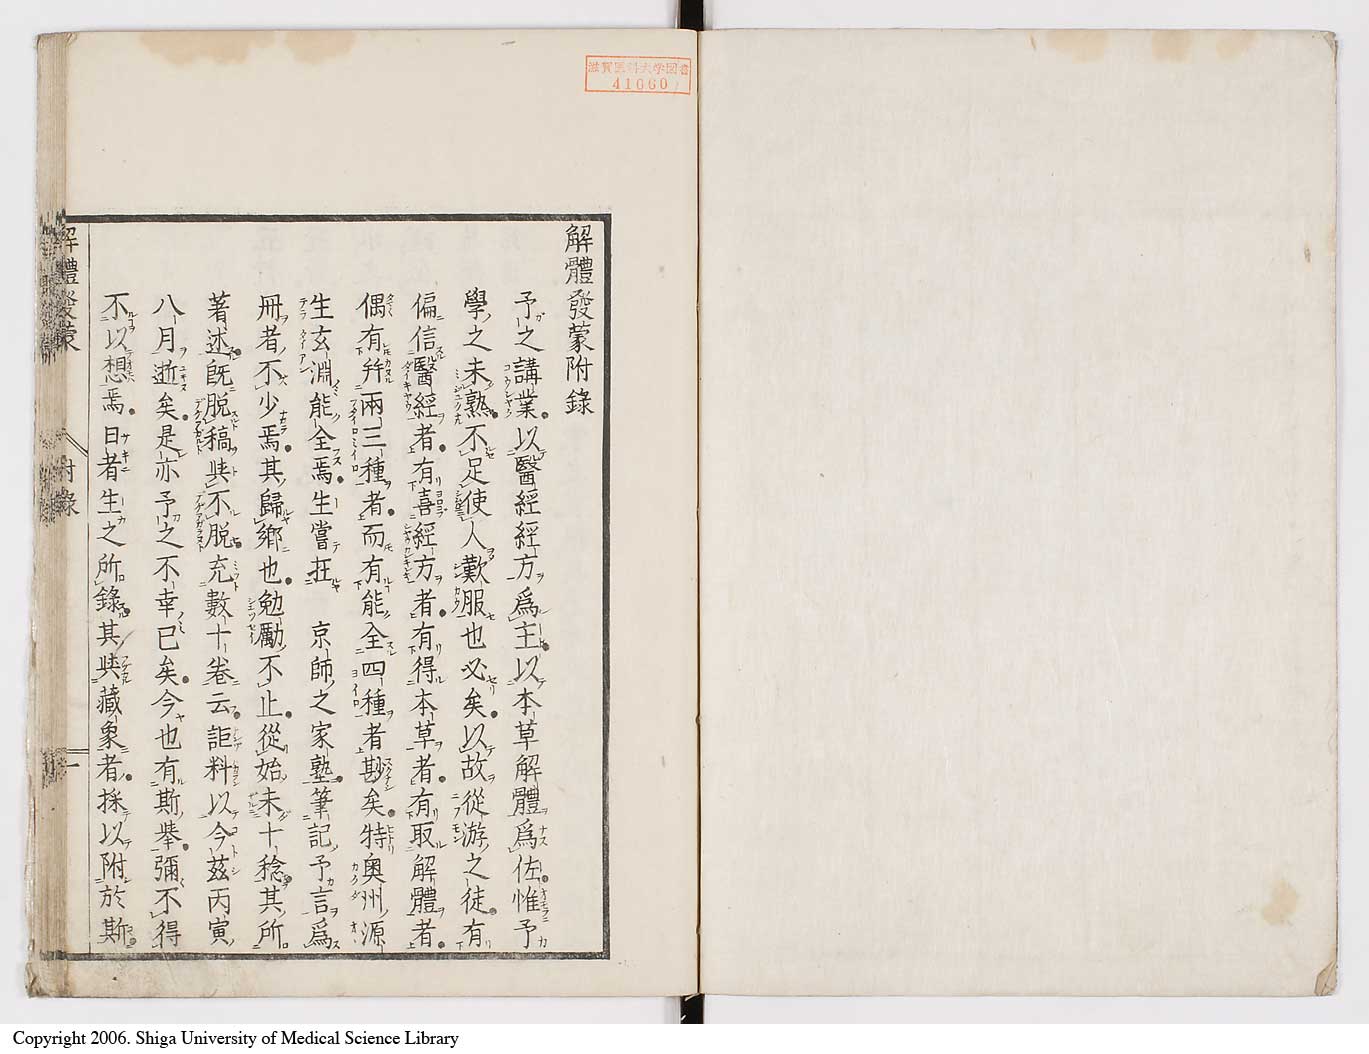 滋賀医科大学図書
41060
解體發蒙附錄
予之講業以醫經經方爲主以本草解體爲佐惟予
學之未熟不足使人歎服也必矣以故從游之徒有
偏信醫經者有喜經方者有得本草者有取解體者
偶有幷兩三種者而有能全四種者尠矣特奧州源
生玄淵能全焉生嘗在 京師之家塾筆記予言爲
冊者不少焉其歸鄉也勉勵不止從始未十稔其所
著述旣脫稿與不脫充數十卷云詎料以今茲丙寅
八月逝矣是亦予之不幸已矣今也有斯擧彌不得
不以想焉日者生之所錄其與藏象者採以附於斯
解體發蒙
附錄
一
Copyright 2006. Shiga University of Medical Science Library